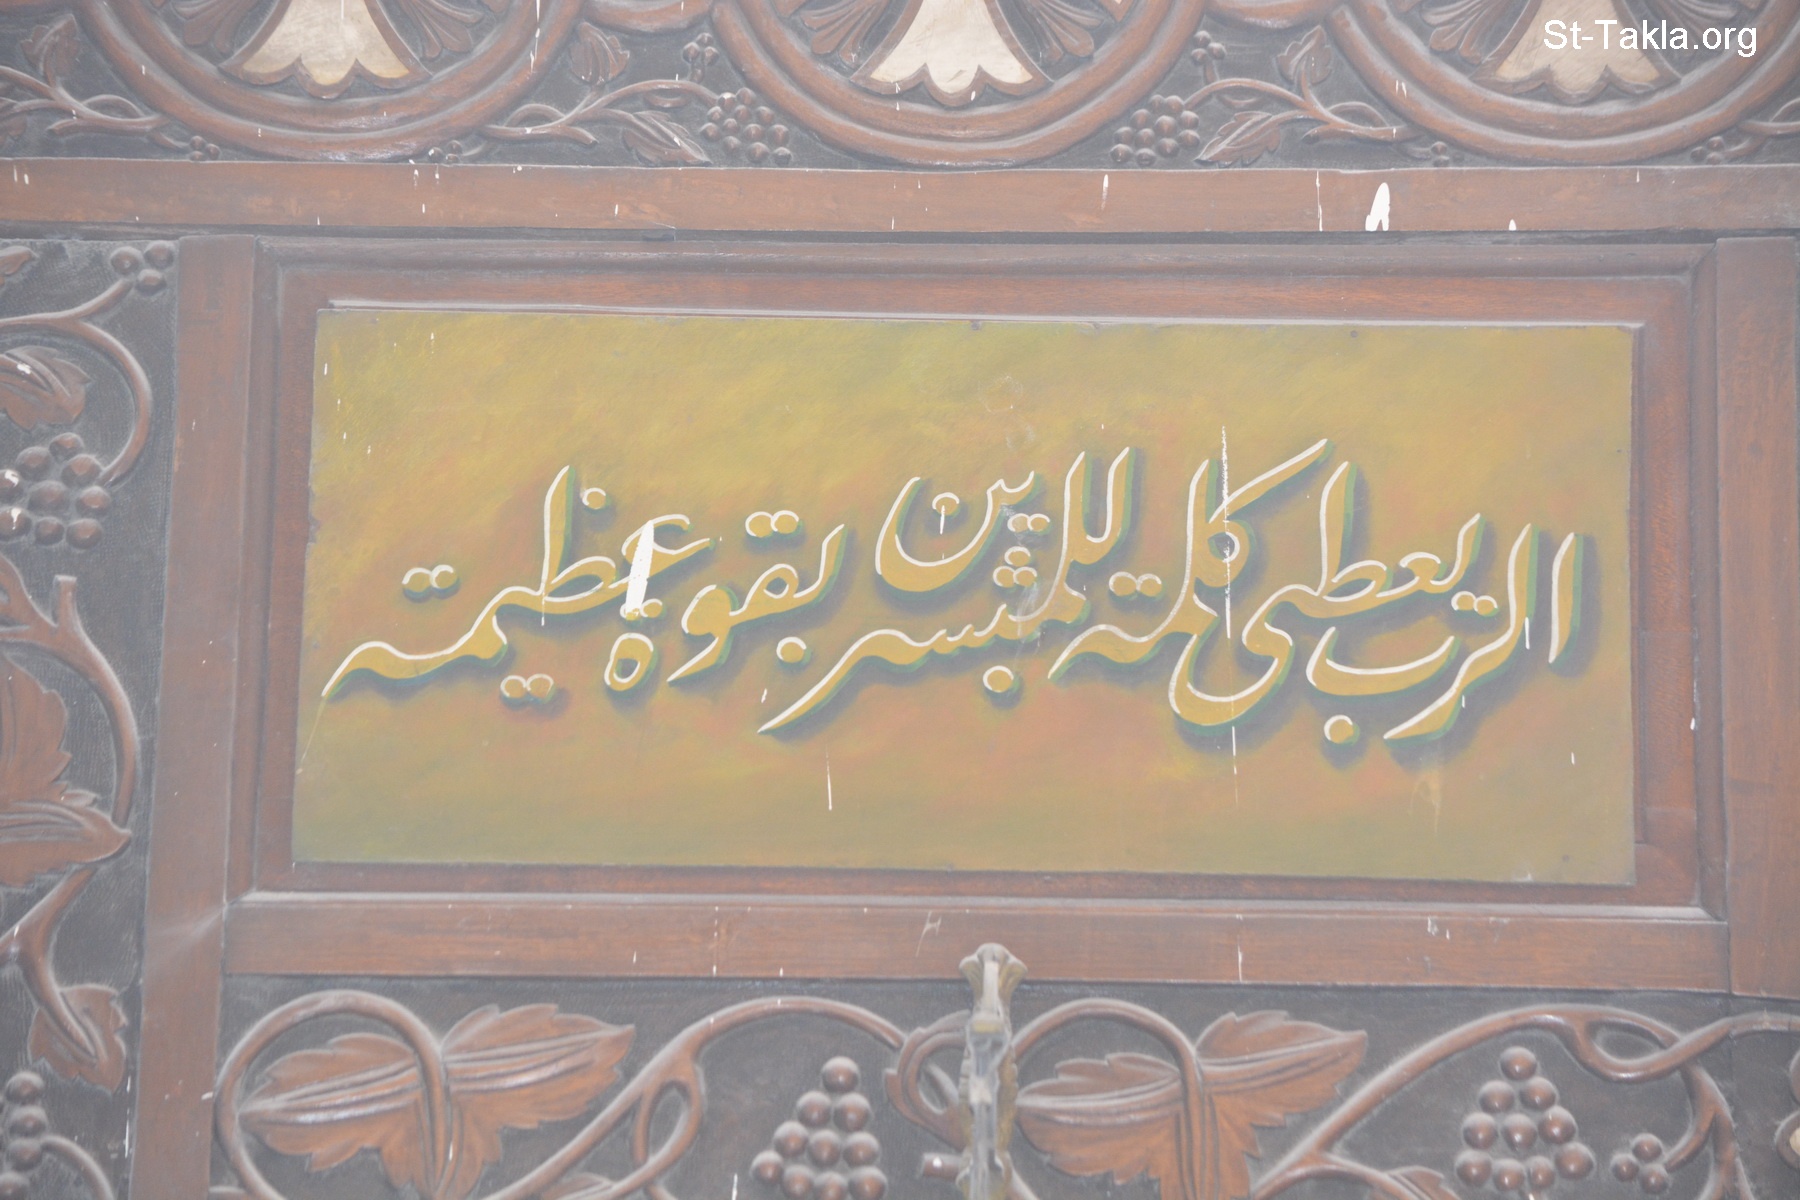 St-Takla.org
الرب يعطى كلمته للمبشرين بقوة عظيمته